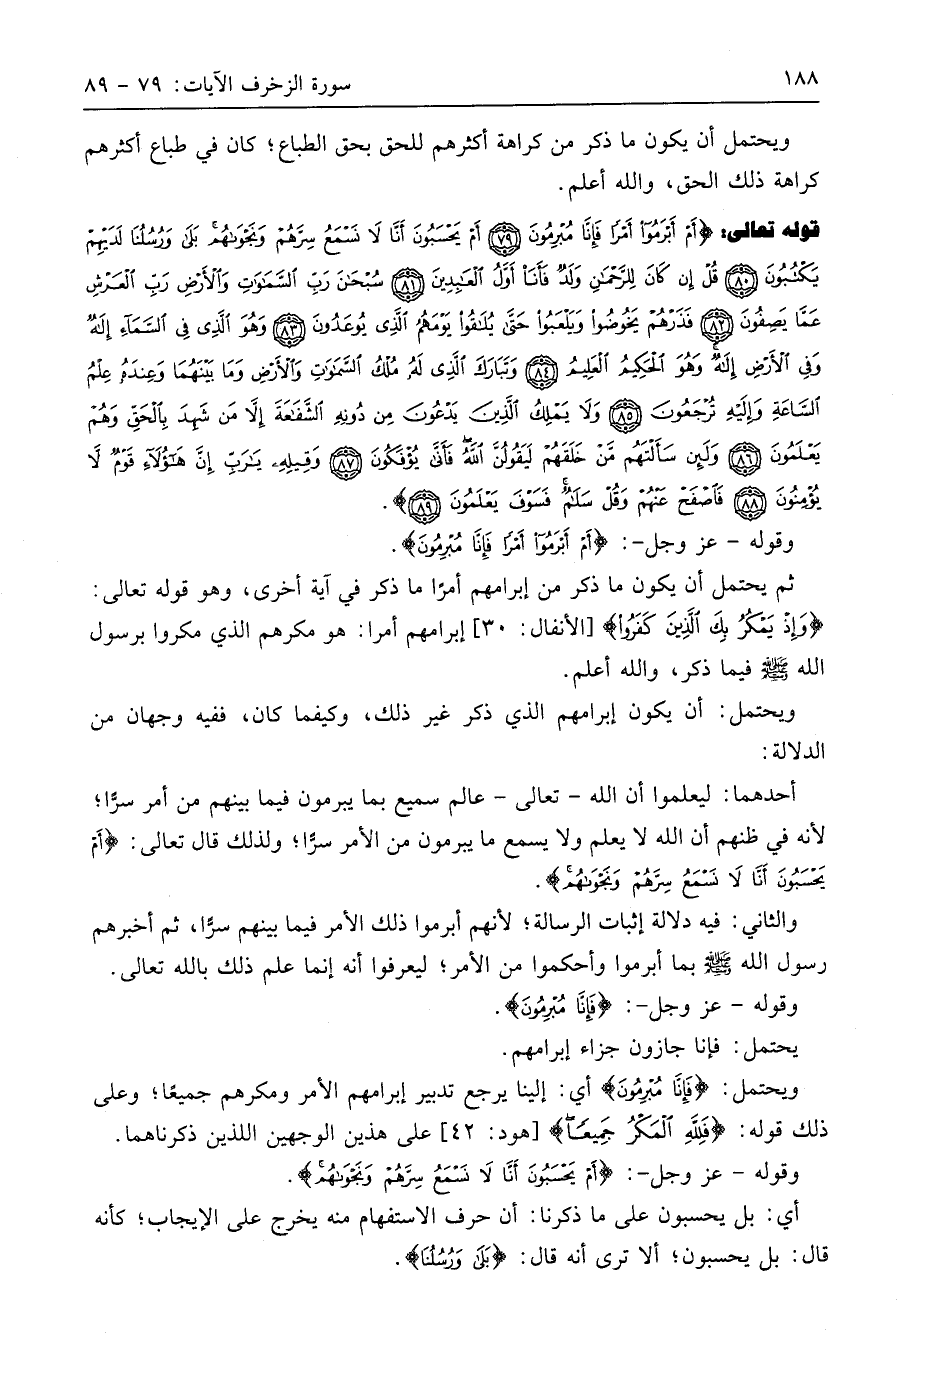 ١٨٨
سورة الزخرف الآيات: ٧٩ - ٨٩
ويحتمل أن يكون ما ذكر من كراهة أكثرهم للحق بحق الطباع؛ كان في طباع أكثرهم
كراهة ذلك الحق، والله أعلم.
قوله تعالى: ﴿أَمْ أَبْرَمُوٓا۟ أَمْرًا فَإِنَّا مُبْرِمُونَ ٧٩ أَمْ يَحْسَبُونَ أَنَّا لَا نَسْمَعُ سِرَّهُمْ وَنَجْوَىٰهُم ۚ بَلَىٰ وَرُسُلُنَا لَدَيْهِمْ
يَكْتُبُونَ ٨٠ قُلْ إِن كَانَ لِلرَّحْمَـٰنِ وَلَدٌ فَأَنَا۠ أَوَّلُ ٱلْعَـٰبِدِينَ ٨١ سُبْحَـٰنَ رَبِّ ٱلسَّمَـٰوَٰتِ وَٱلْأَرْضِ رَبِّ ٱلْعَرْشِ
عَمَّا يَصِفُونَ ٨٢ فَذَرْهُمْ يَخُوضُوا۟ وَيَلْعَبُوا۟ حَتَّىٰ يُلَـٰقُوا۟ يَوْمَهُمُ ٱلَّذِى يُوعَدُونَ ٨٣ وَهُوَ ٱلَّذِى فِى ٱلسَّمَآءِ إِلَـٰهٌ
وَفِى ٱلْأَرْضِ إِلَـٰهٌ ۚ وَهُوَ ٱلْحَكِيمُ ٱلْعَلِيمُ ٨٤ وَتَبَارَكَ ٱلَّذِى لَهُۥ مُلْكُ ٱلسَّمَـٰوَٰتِ وَٱلْأَرْضِ وَمَا بَيْنَهُمَا وَعِندَهُۥ عِلْمُ
ٱلسَّاعَةِ وَإِلَيْهِ تُرْجَعُونَ ٨٥ وَلَا يَمْلِكُ ٱلَّذِينَ يَدْعُونَ مِن دُونِهِ ٱلشَّفَـٰعَةَ إِلَّا مَن شَهِدَ بِٱلْحَقِّ وَهُمْ
يَعْلَمُونَ ٨٦ وَلَئِن سَأَلْتَهُم مَّنْ خَلَقَهُمْ لَيَقُولُنَّ ٱللَّهُ ۖ فَأَنَّىٰ يُؤْفَكُونَ ٨٧ وَقِيلِهِۦ يَـٰرَبِّ إِنَّ هَـٰٓؤُلَآءِ قَوْمٌ لَّا
يُؤْمِنُونَ ٨٨ فَٱصْفَحْ عَنْهُمْ وَقُلْ سَلَـٰمٌ ۚ فَسَوْفَ يَعْلَمُونَ ٨٩﴾.
وقوله - عز وجل-: ﴿أَمْ أَبْرَمُوٓا۟ أَمْرًا فَإِنَّا مُبْرِمُونَ﴾.
ثم يحتمل أن يكون ما ذكر من إبرامهم أمرًا ما ذكر في آية أخرى، وهو قوله تعالى:
﴿وَإِذْ يَمْكُرُ بِكَ ٱلَّذِينَ كَفَرُوا۟﴾ [الأنفال: ٣٠] إبرامهم أمرا: هو مكرهم الذي مكروا برسول
الله ﷺ فيما ذكر، والله أعلم.
ويحتمل: أن يكون إبرامهم الذي ذكر غير ذلك، وكيفما كان، ففيه وجهان من
الدلالة:
أحدهما: ليعلموا أن الله - تعالى - عالم سميع بما يبرمون فيما بينهم من أمر سرًّا؛
لأنه في ظنهم أن الله لا يعلم ولا يسمع ما يبرمون من الأمر سرًّا؛ ولذلك قال تعالى: ﴿أَمْ
يَحْسَبُونَ أَنَّا لَا نَسْمَعُ سِرَّهُمْ وَنَجْوَىٰهُم ۚ﴾.
والثاني: فيه دلالة إثبات الرسالة؛ لأنهم أبرموا ذلك الأمر فيما بينهم سرًّا، ثم أخبرهم
رسول الله ﷺ بما أبرموا وأحكموا من الأمر؛ ليعرفوا أنه إنما علم ذلك بالله تعالى.
وقوله - عز وجل-: ﴿فَإِنَّا مُبْرِمُونَ﴾.
يحتمل: فإنا جازون جزاء إبرامهم.
ويحتمل: ﴿فَإِنَّا مُبْرِمُونَ﴾ أي: إلينا يرجع تدبير إبرامهم الأمر ومكرهم جميعًا؛ وعلى
ذلك قوله: ﴿فَلِلَّهِ ٱلْمَكْرُ جَمِيعًا ۖ﴾ [هود: ٤٢] على هذين الوجهين اللذين ذكرناهما.
وقوله - عز وجل-: ﴿أَمْ يَحْسَبُونَ أَنَّا لَا نَسْمَعُ سِرَّهُمْ وَنَجْوَىٰهُم ۚ﴾.
أي: بل يحسبون على ما ذكرنا: أن حرف الاستفهام منه يخرج على الإيجاب؛ كأنه
قال: بل يحسبون؛ ألا ترى أنه قال: ﴿بَلَىٰ وَرُسُلُنَا﴾.